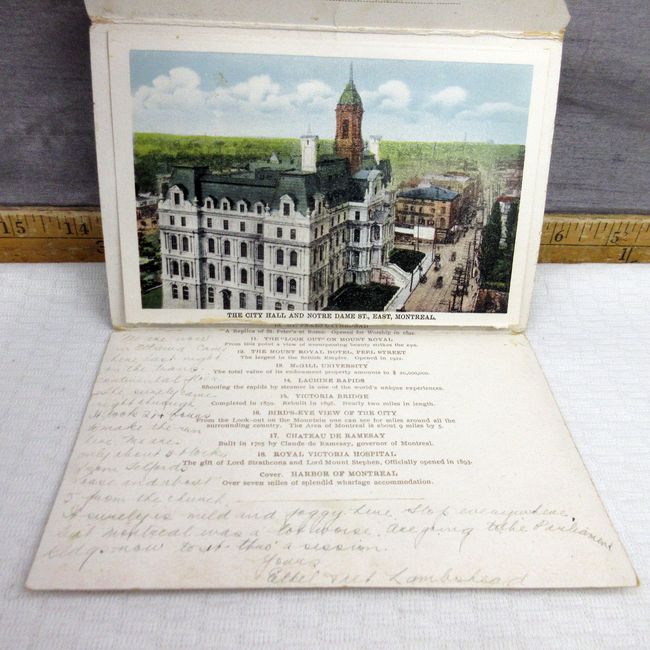 THE CITY HALL AND NOTRE DAME ST., EAST, MONTREAL.
A Replica of St. Peter's at Rome. Opened for Worship in
11. THE "LOOK OUT" ON MOUNT ROYAL
From this point a view of unsurpassing beauty strikes the eye.
12. THE MOUNT ROYAL HOTEL, PEEL STREET
The largest in the British Empire. Opened in 1922.
13. McGILL UNIVERSITY
The total value of its endowment property amounts to $ 20,000,000.
14. LACHINE RAPIDS
Shooting the rapids by steamer is one of the world's unique experiences.
15. VICTORIA BRIDGE
Completed in 1859. Rebuilt in 1898. Nearly two miles in length.
16. BIRD'S-EYE VIEW OF THE CITY
From the Look-out on the Mountain one can see for miles around all the
surrounding country. The Area of Montreal is about 9 miles by 5.
17. CHATEAU DE RAMESAY
Built in 1705 by Claude de Ramesay, governor of Montreal.
18. ROYAL VICTORIA HOSPITAL
The gift of Lord Strathcona and Lord Mount Stephen, Officially opened in 1893.
Cover. HARBOR OF MONTREAL
Over seven miles of splendid wharfage accommodation.
here last night
the trans
continental
right through
to make the run
only about 3 blocks
from
and about
5 from the church.
It surely is mild and foggy here. Slop everywhere
but Montreal was a lot worse. Are going to the Parliament
bldgs now to sit thro' a session.
Yours
Lambshead
15 16
14 15 16